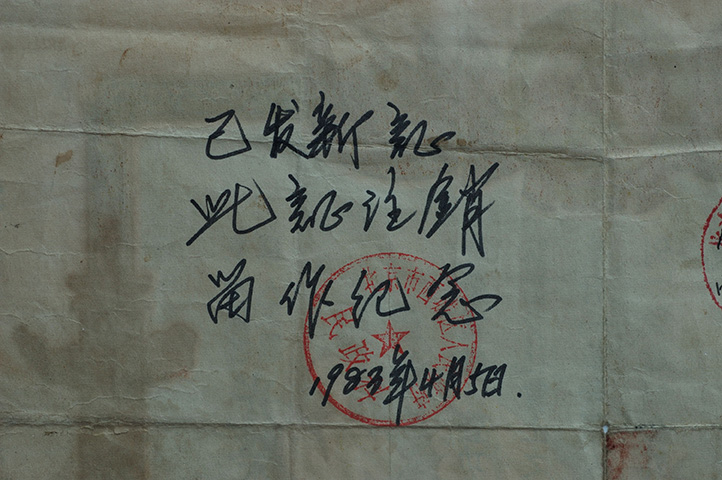 已发新证
此证注销
留作纪念
1983年4月5日.
民政